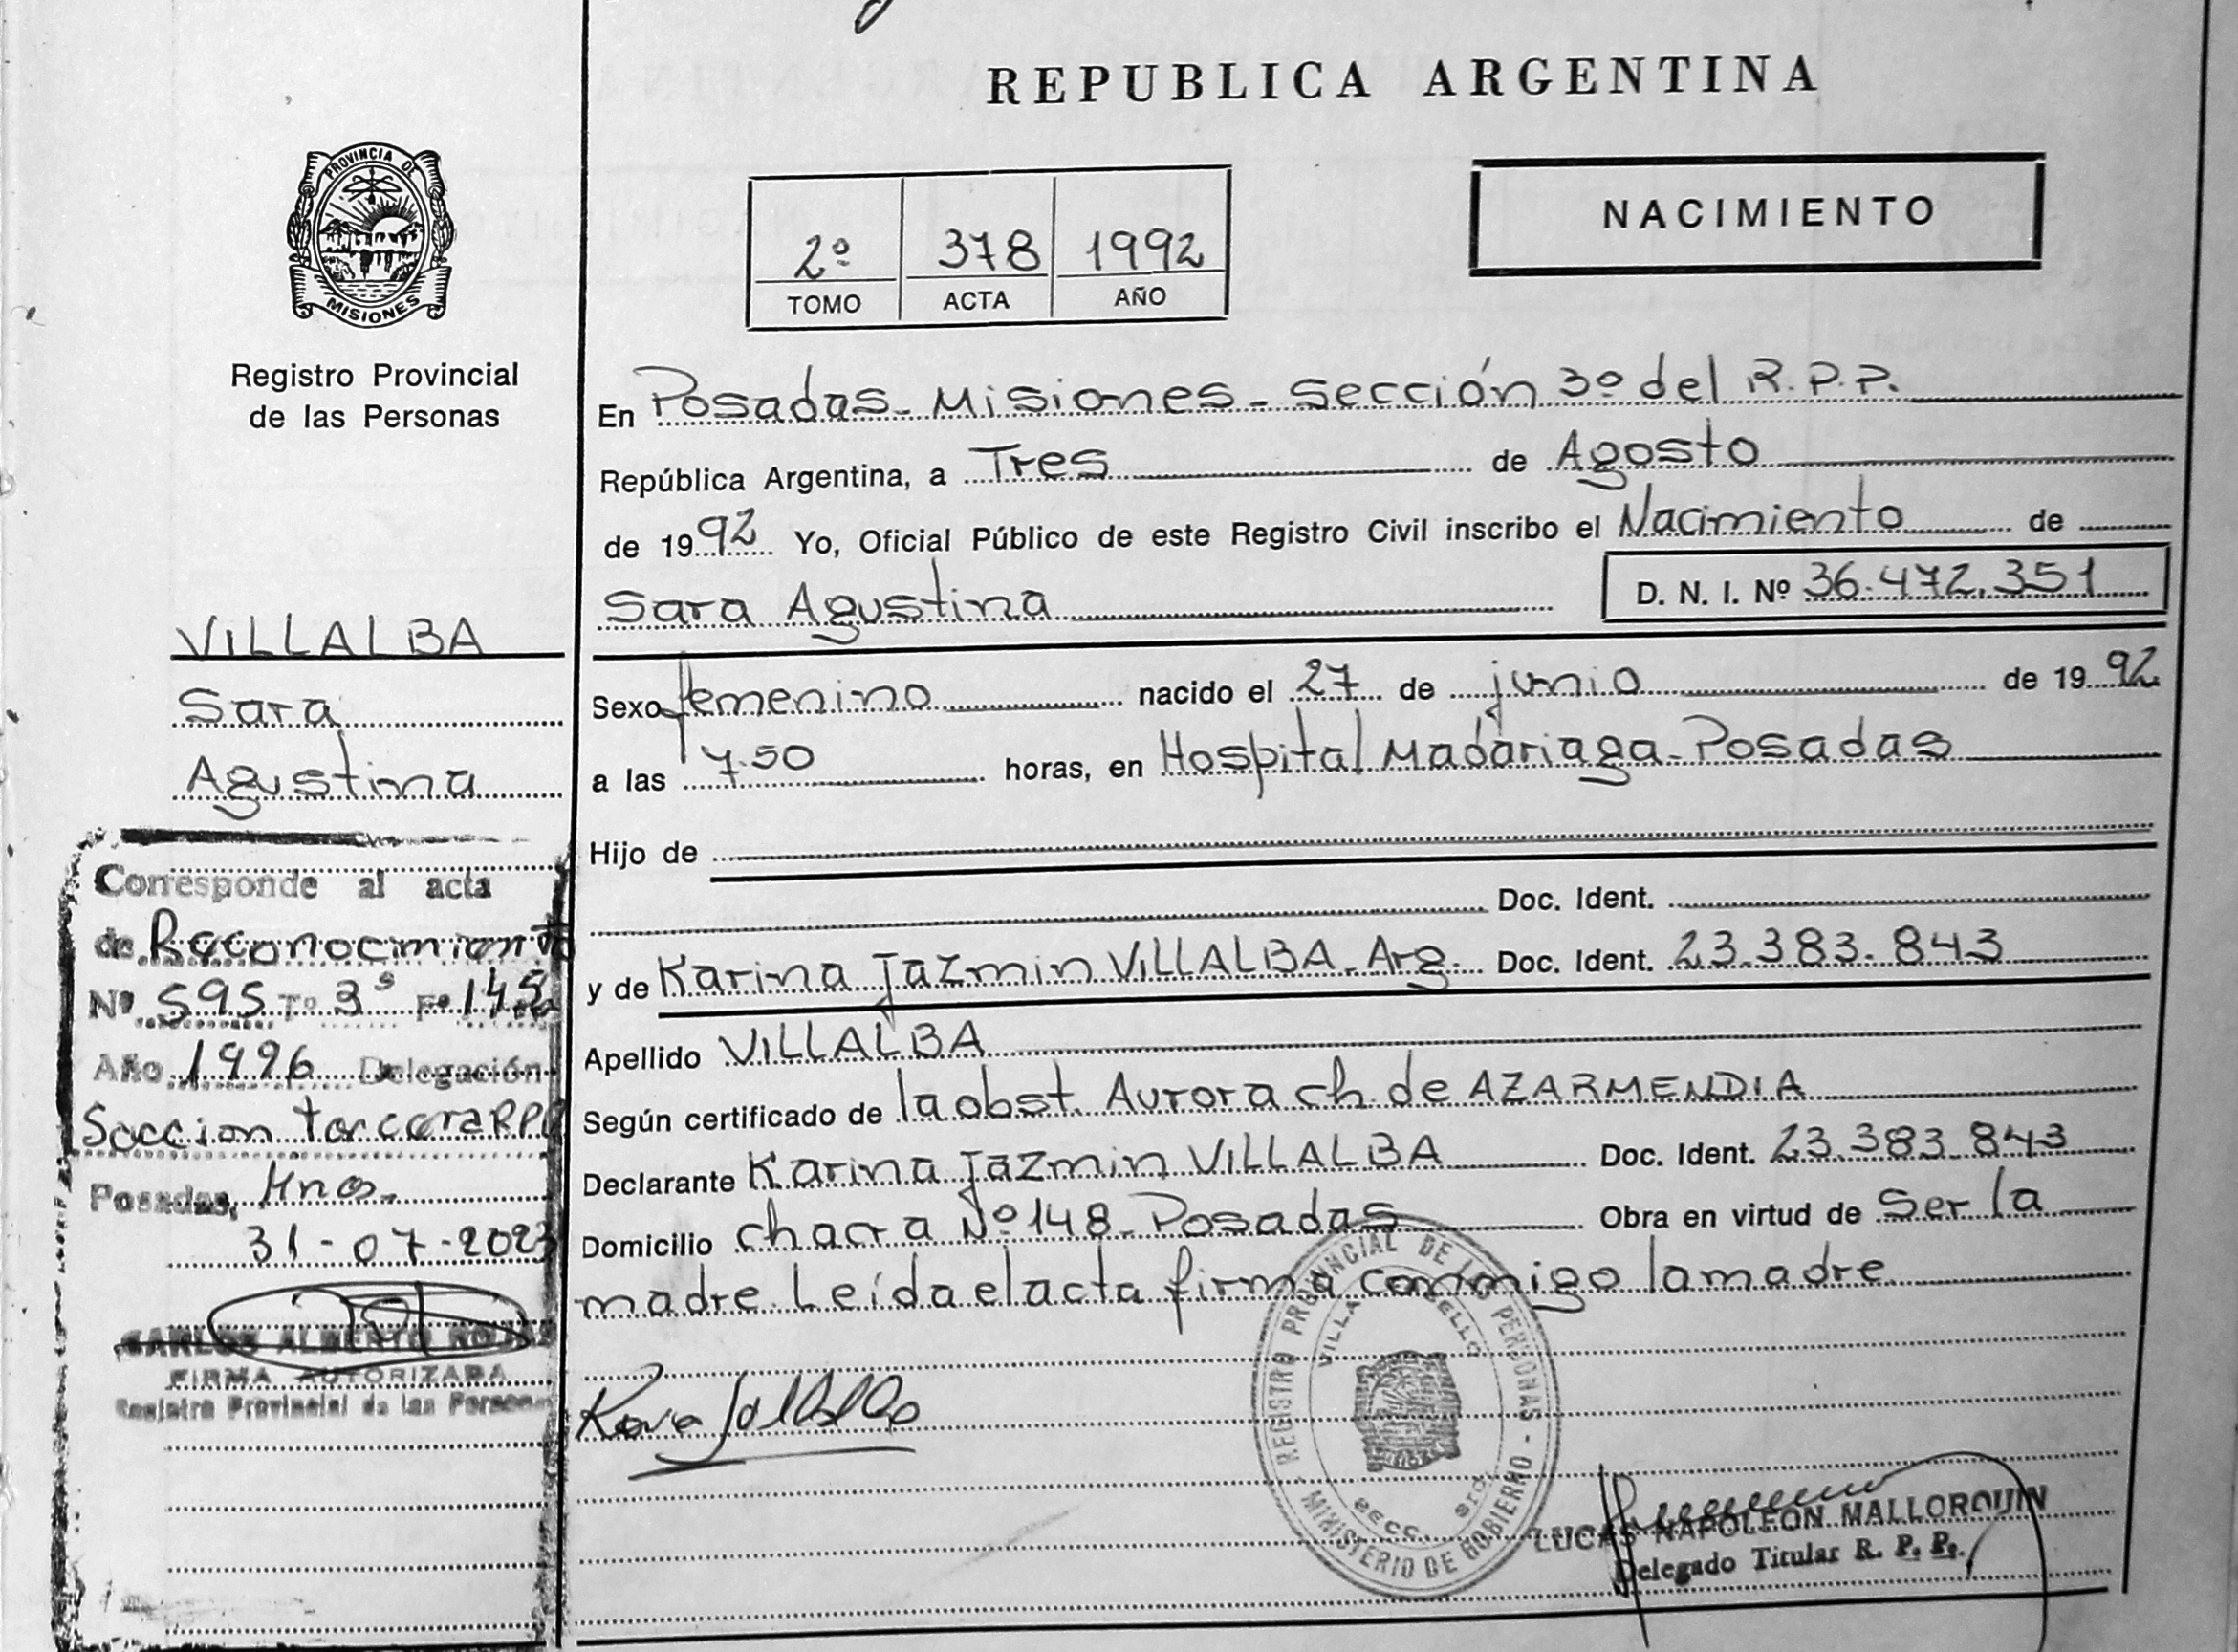 REPUBLICA ARGENTINA
PROVINCIA DE
MISIONES
Registro Provincial
de las Personas
2º 378 1992
TOMO ACTA AÑO
NACIMIENTO
En Posadas- Misiones- Sección 3º del R.P.P.
República Argentina, a Tres de Agosto
de 1992 Yo, Oficial Público de este Registro Civil inscribo el Nacimiento de
Sara Agustina D. N. I. Nº 36.472.351
Sexo femenino nacido el 27 de junio de 1992
a las 7.50 horas, en Hospital Madariaga-Posadas
Hijo de
Doc. Ident.
y de Karina Jazmin VILLALBA-Arg. Doc. Ident. 23.383.843
Apellido VILLALBA
Según certificado de la obst. Aurora ch. de AZARMENDIA
Declarante Karina Jazmin VILLALBA Doc. Ident. 23.383.843
Domicilio chacra Nº 148-Posadas Obra en virtud de Ser la
madre. Leída el acta firma conmigo la madre
VILLALBA
Sara
Agustina
Corresponde al acta
de Reconocimiento
Nº 595 Tº 3º Fº
Año 1996 Delegación
Seccion tercera RPP
Posadas, Mnes.
31-07-2023
CARLOS ALBERTO ROJAS
FIRMA AUTORIZADA
Registro Provincial de las Personas
REGISTRO PROVINCIAL DE LAS PERSONAS - MINISTERIO DE GOBIERNO -
VILLA
SECC.
LUCAS NAPOLEON MALLORQUIN
Delegado Titular R. P. P.